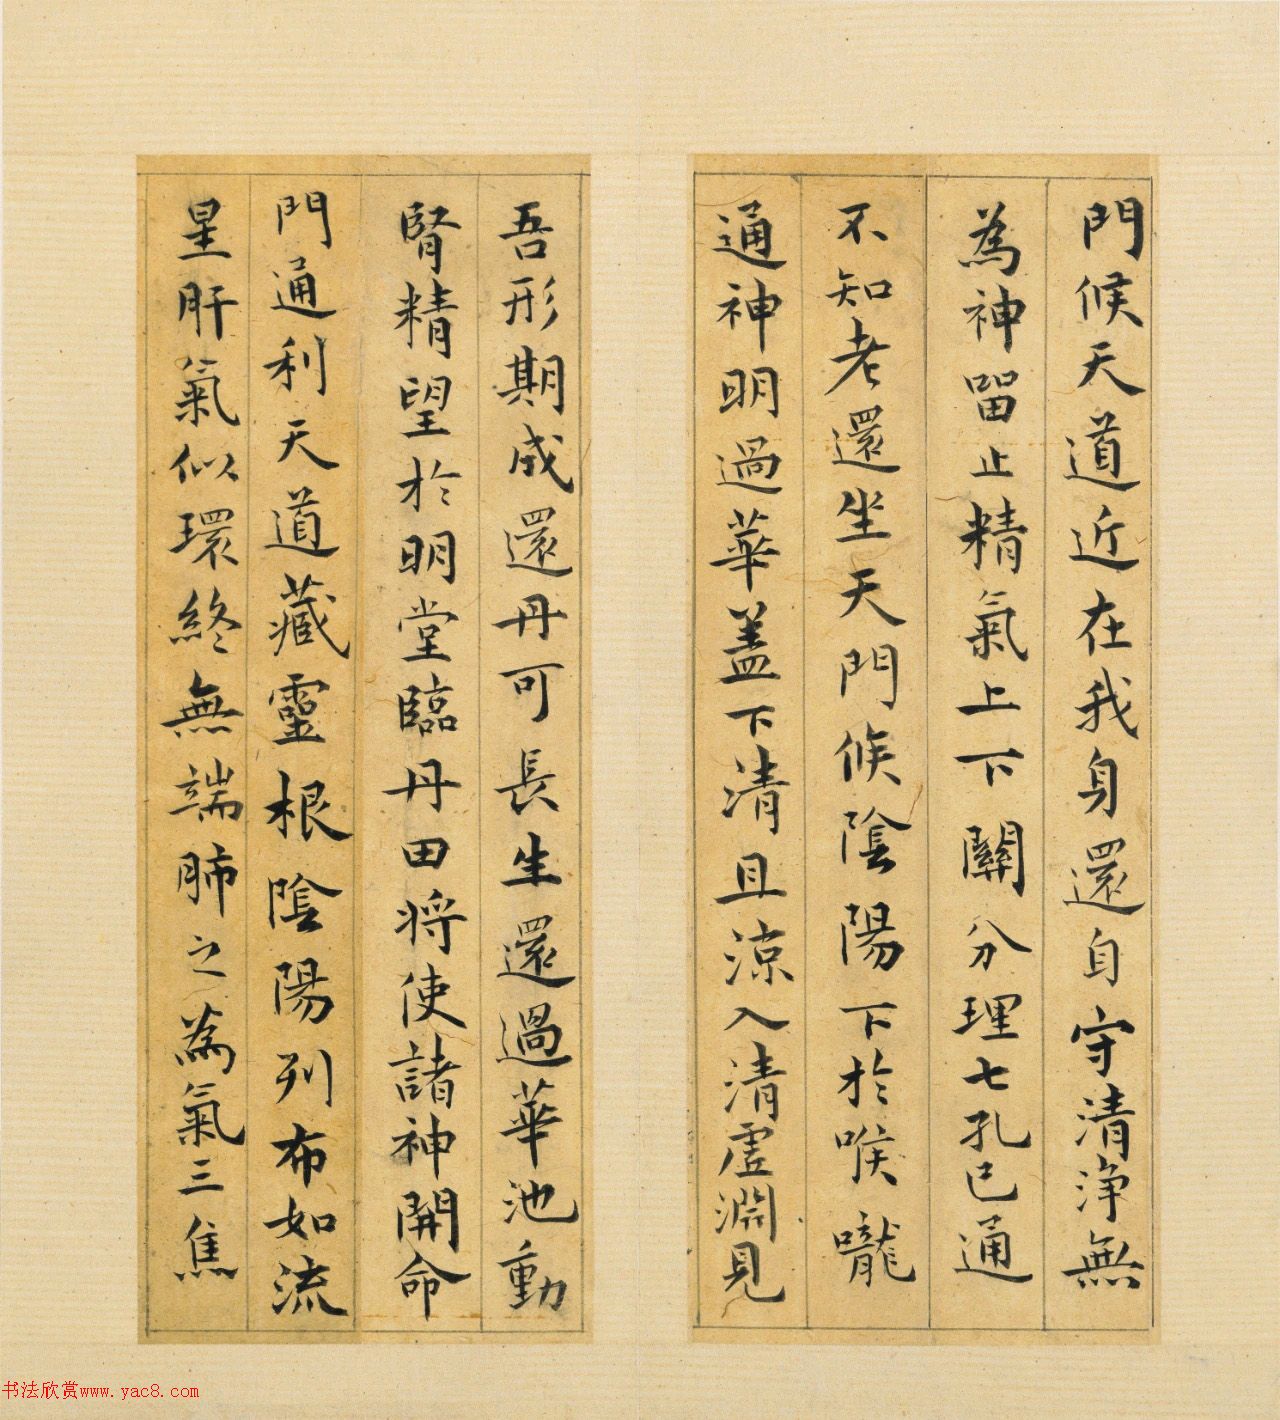 門候天道近在我身還自守清淨無
為神留止精氣上下關分理七孔已通
不知老還坐天門候陰陽下於喉嚨
通神明過華蓋下清且涼入清虛淵見
吾形期成還丹可長生還過華池動
腎精望於明堂臨丹田將使諸神開命
門通利天道藏靈根陰陽列布如流
星肝氣似環終無端肺之為氣三焦
书法欣赏www.yac8.com